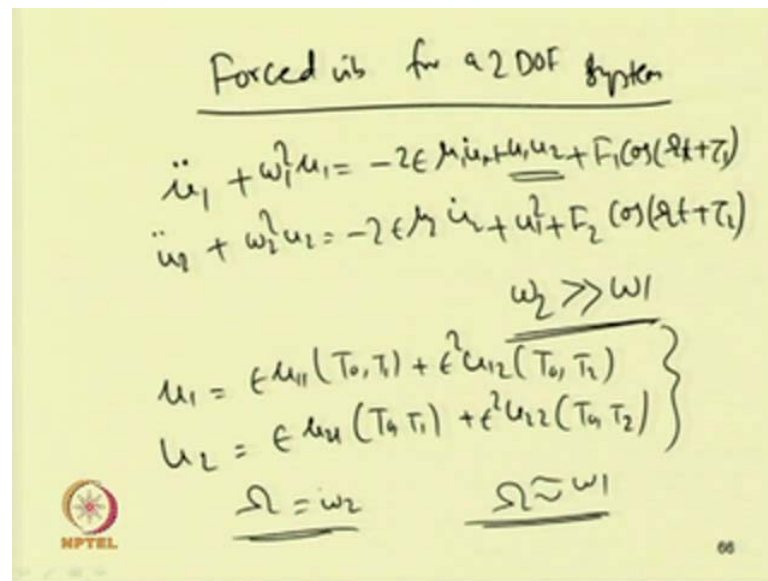 Forced vib for a 2 DOF System
ü₁ + ω₁²u₁ = -2ϵμ₁u̇₁ + u₁u₂ + F₁ cos(Ωt+τ₁)
ü₂ + ω₂²u₂ = -2ϵμ₂u̇₂ + u₁² + F₂ cos(Ωt+τ₂)
ω₂ >> ω1
u₁ = ϵu₁₁(T₀,T₁) + ϵ²u₁₂(T₀,T₂)
u₂ = ϵu₂₁(T₀,T₁) + ϵ²u₂₂(T₀,T₂)
Ω = ω₂ Ω ≈ ω1
NPTEL
66